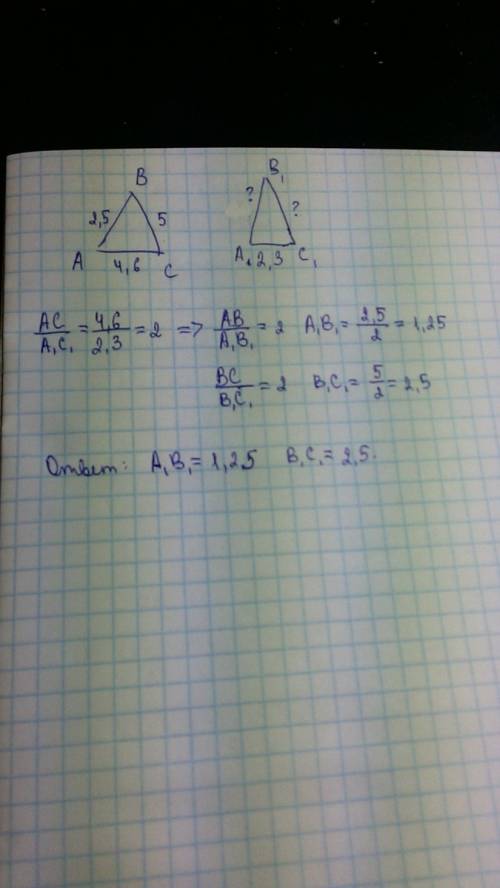 B B₁
2,5 5 ? ?
A 4,6 C A₁ 2,3 C₁
AC/A₁C₁ = 4,6/2,3 = 2 => AB/A₁B₁ = 2 A₁B₁ = 2,5/2 = 1,25
BC/B₁C₁ = 2 B₁C₁ = 5/2 = 2,5
Ответ: A₁B₁ = 1,25 B₁C₁ = 2,5.